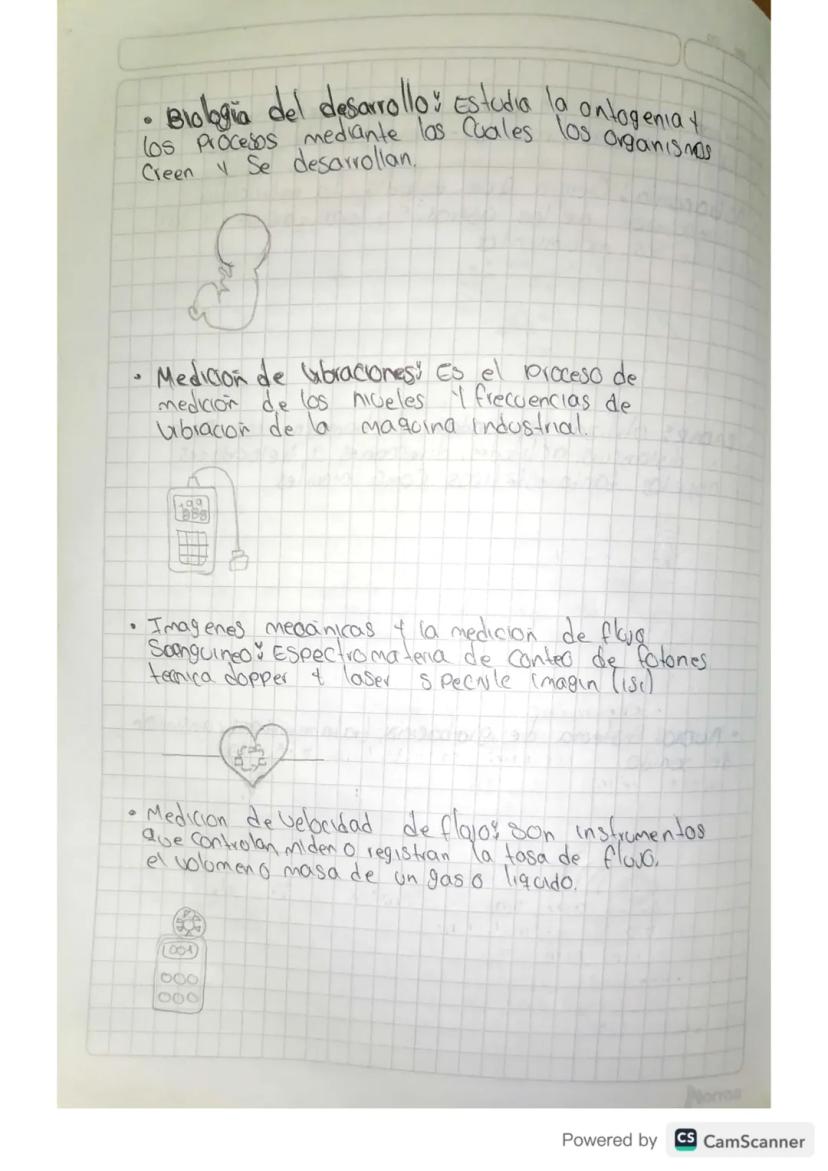 • Biología del desarrollo: Estudia la ontogenia y
los procesos mediante los cuales los organismos
creen y se desarrollan.
• Medición de vibraciones: Es el proceso de
medición de los niveles y frecuencias de
vibración de la maquina industrial.
188
888
• Imagenes mecánicas y la medición de flujo
Sanguineo: Espectromateria de conteo de fotones
tecnica dopper y laser specnle imagin (isc)
• Medicion de velocidad de flojo: son instrumentos
que controlan, miden o registran la tasa de flujo,
el volumen o masa de un gas o liquido.
001
000
000
Norma
Powered by CS CamScanner